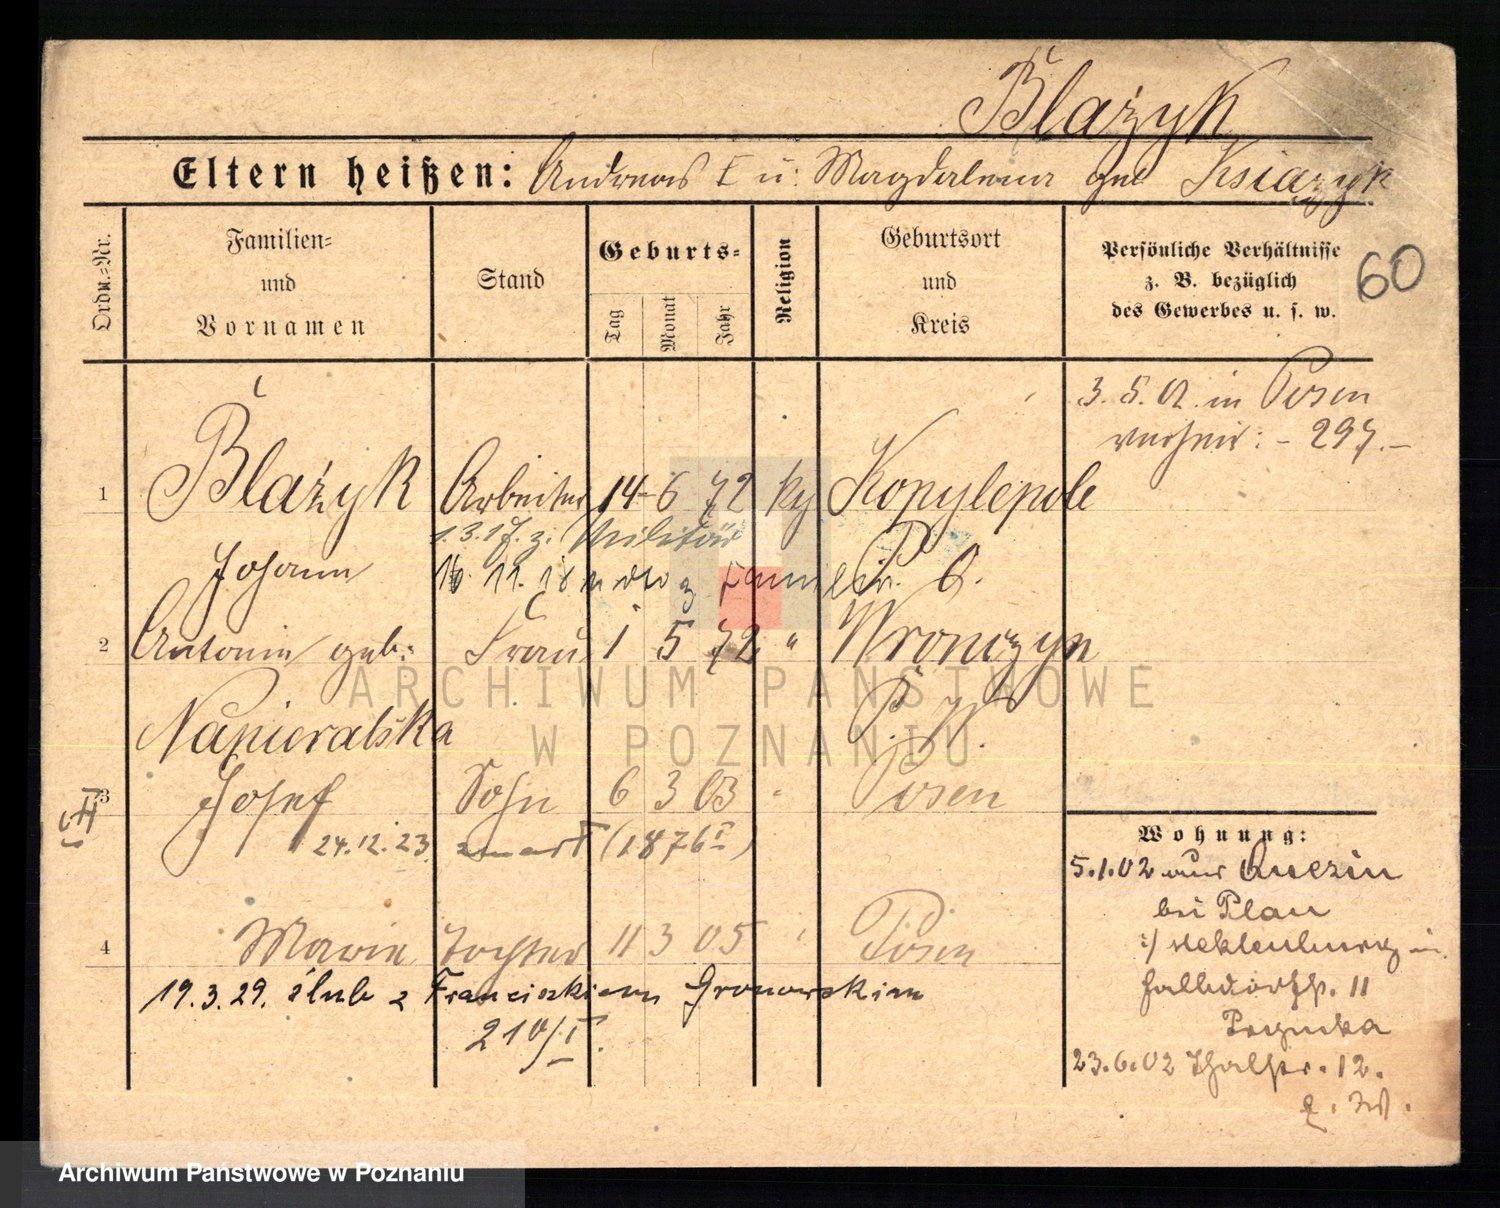 Błażyk
Eltern heißen: Andreas I u. Magdalena geb Ksiązyk
Ordn.=Nr.
Familien=
und
Vornamen
Stand
Geburts=
Tag
Monat
Jahr
Religion
Geburtsort
und
Kreis
Persönliche Verhältnisse
z. B. bezüglich
des Gewerbes u. s. w.
60
3. 5. 02 in Posen
verheir: - 297.-
1 Błażyk Arbeiter 14 6 72 kg Kopylepole
1.3.17. z. Militär
Johann 16. 11. 18 z Familie P. O.
2 Antonie geb: Frau 1 5 72 " Wronczyn
Napieralska P. W.
3 Josef Sohn 6 3 03 " Posen
24.12.23. (1876 I)
4 Marie Tochter 11 3 05 " Posen
19.3.29. ślub z Franciszkiem Gronowskim
210/I.
Wohnung:
5.1.02 aus Quezin
bei Plau
Meklenburg in
Halldorfstr. 11
23.6.02 Thalstr. 12.
ARCHIWUM PAŃSTWOWE
W POZNANIU
Archiwum Państwowe w Poznaniu